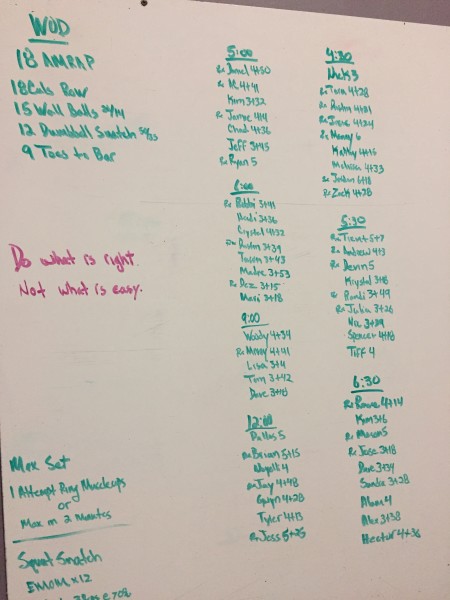 WOD
18 AMRAP
18 Cals Row
15 Wall Balls 20/14
12 Dumbbell Snatch 50/35
9 Toes to Bar
Do what is right.
Not what is easy.
Max Set
1 Attempt Ring Muscleups
or
Max in 2 Minutes
Squat Snatch
EMOM x 12
5:00
4+50
4+41
Kim 3+32
Rx Jamie 4+4
Chad 4+36
Jeff 3+45
Rx Ryan 5
6:00
Rx Robbi 3+41
Heidi 3+36
Crystal 4+32
Dustin 3+39
Jason 3+43
3+53
Rx Dez 3+15
Mari 3+18
9:00
Woody 4+34
Rx Manny 4+41
Lisa 3+4
Tim 3+42
Dave 3+48
12:00
Dallas 5
Rx Brian 5+15
4
Rx Jay 4+48
4+28
Tyler 4+13
Rx Jess 5+25
4:30
Nick 3
Rx 4+28
Rx Dustin 4+21
Rx Irene 4+24
Rx Manny 6
Kathy 4+15
Melissa 4+33
Rx Jordan 6+18
Rx Zack 4+28
5:30
Rx Trent 5+7
Rx Andrew 4+3
Rx Devin 5
Krystal 3+8
3+49
Rx Julia 3+26
3+29
Spencer 4+18
Tiff 4
6:30
Rx 4+14
Kim 3+6
Rx Mason 5
Rx Jose 3+18
Dave 3+34
3+28
4
Alex 3+38
Hector 4+36